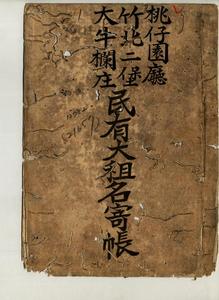 桃仔園廳
竹北二堡
大牛欄庄
民有大租名寄帳